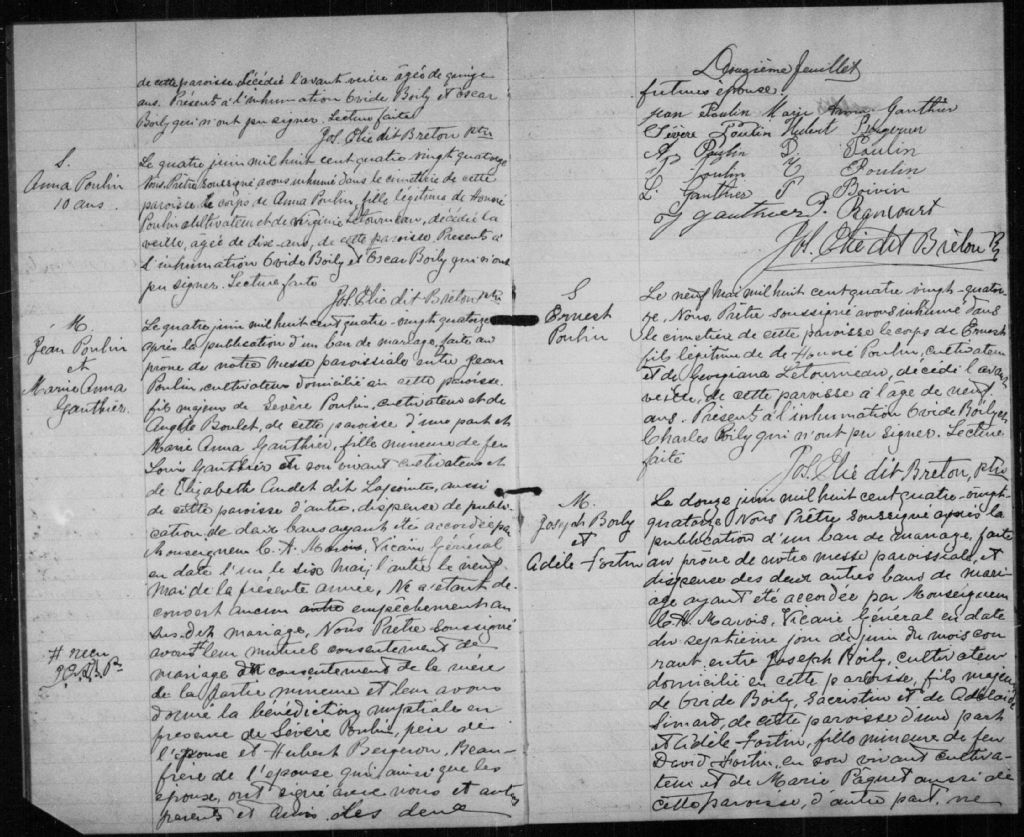 de cette paroisse. Décédé l'avant veille âgée de quinze
ans. Présents à l'inhumation Ovide Boily et Oscar
Boily qui n'ont pu signer. Lecture faite
Jos. Elie dit Breton ptre
S.
Anna Poulin
10 ans.
Le quatre juin mil huit cent quatre vingt quatorze
Nous Prêtre soussigné avons inhumé dans le cimetière de cette
paroisse le corps de Anna Poulin, fille légitime de Honoré
Poulin cultivateur et de Virginie Letourneau, décédée la
veille, âgée de dix ans, de cette paroisse. Présents à
l'inhumation Ovide Boily et Oscar Boily qui n'ont
pu signer. Lecture faite
Jos. Elie dit Breton ptre
M.
Jean Poulin
et
Marie Anna
Gauthier.
Le quatre juin mil huit cent quatre-vingt quatorze
après la publication d'un ban de mariage, faite au
prône de notre messe paroissiale entre Jean
Poulin, cultivateur domicilié en cette paroisse,
fils majeur de Sévère Poulin, cultivateur et de
Angèle Boulet, de cette paroisse d'une part et
Marie Anna Gauthier, fille mineure de feu
Louis Gauthier en son vivant cultivateur et
de Elizabeth Audet dit Lapointe, aussi
de cette paroisse d'autre, dispense de publi-
cation de deux bans ayant été accordée par
Monseigneur C. A. Marois, Vicaire Général
en date l'un le six Mai, l'autre le neuf
Mai de la présente année, Ne s'étant dé-
couvert aucun autre empêchement au
sus-dit mariage, Nous Prêtre soussigné
avons # leur mutuel consentement de
mariage consentement de la mère
de la partie mineure et leur avons
donné la bénédiction nuptiale en
présence de Sévère Poulin, père de
l'épouse et Hubert Bergeron, Beau-
frère de l'épouse qui ainsi que les
époux, ont signé avec nous et autres
parents et amis des deux
# reçu
Douzième feuillet
futures épouse.
Jean Poulin Marie Anna Gauthier
Sévère Poulin Hubert Bergeron
A. Poulin D. Poulin
J. Poulin Poulin
L. Gauthier P Boivin
J Gauthier D. Rancourt
Jos. Elie dit Breton Ptr
S
Ernest
Poulin
Le neuf Mai mil huit cent quatre-vingt-quator-
ze, Nous, Prêtre soussigné avons inhumé dans
le cimetière de cette paroisse le corps de Ernest
fils légitime de de Honoré Poulin, cultivateur
et de Georgiana Letourneau, décédé l'avant
veille, de cette paroisse à l'âge de neuf
ans. Présents à l'inhumation Ovide Boily et
Charles Boily qui n'ont pu signer. Lecture
faite
Jos. Elie dit Breton, ptre
M.
Joseph Boily
et
Adèle Fortin
Le douze juin mil huit cent quatre-vingt-
quatorze, Nous Prêtre soussigné après la
publication d'un ban de mariage, faite
au prône de notre messe paroissiale, et
dispense des deux autres bans de mari-
age ayant été accordée par Monseigneur
C. A. Marois, Vicaire Général en date
du septième jour de juin du mois cou
rant, entre Joseph Boily, cultivateur
domicilié en cette paroisse, fils majeur
de Ovide Boily, Sacristin et de Adelaide
Simard, de cette paroisse d'une part
et Adèle Fortin, fille mineure de feu
David Fortin, en son vivant cultiva-
teur et de Marie Paquet aussi de
cette paroisse, d'autre part, ne